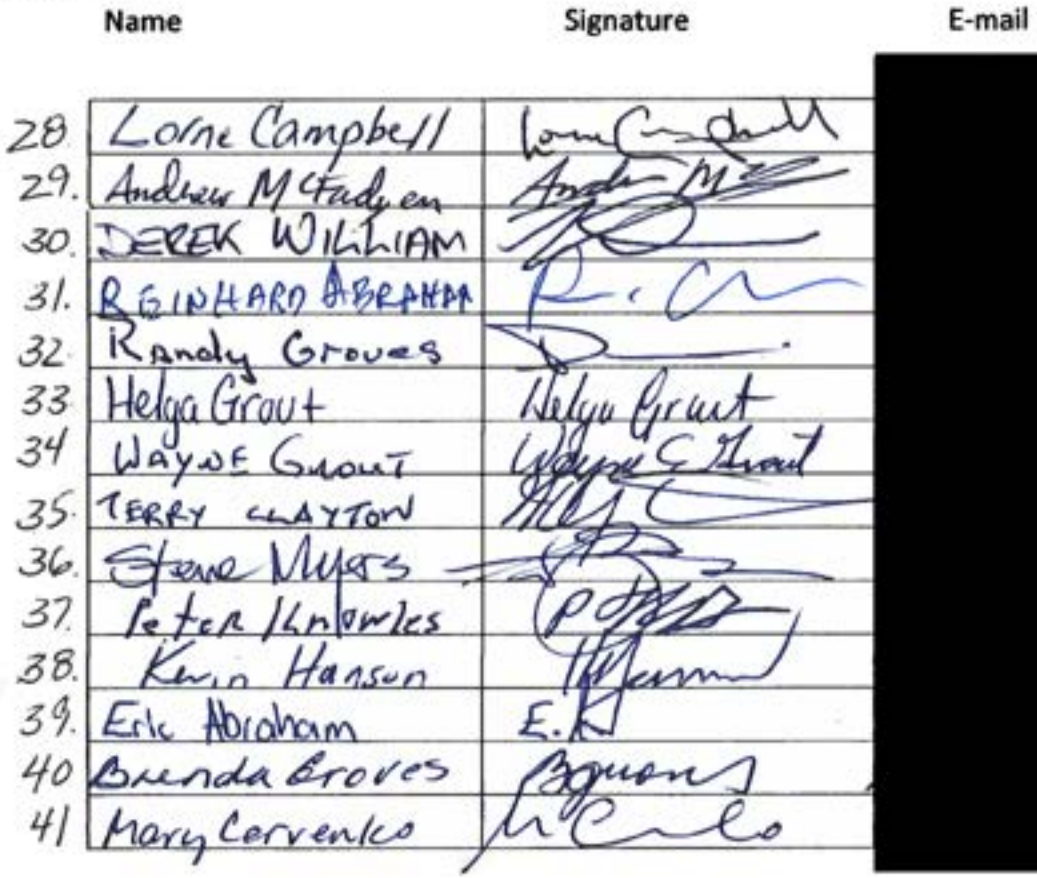 Name Signature E-mail
28. Lorne Campbell Lorne Campbell
29. Andrew McFadyen
30. DEREK WILLIAM
31. REINHARD ABRAHAM
32. Randy Groves
33. Helga Grout Helga Grout
34 WAYNE GROUT Wayne E Grout
35. TERRY CLAYTON
36. Steve Myers
37. Peter Knowles
38. Kevin Hanson
39. Eric Abraham E.
40 Brenda Groves
41 Mary Cervenko